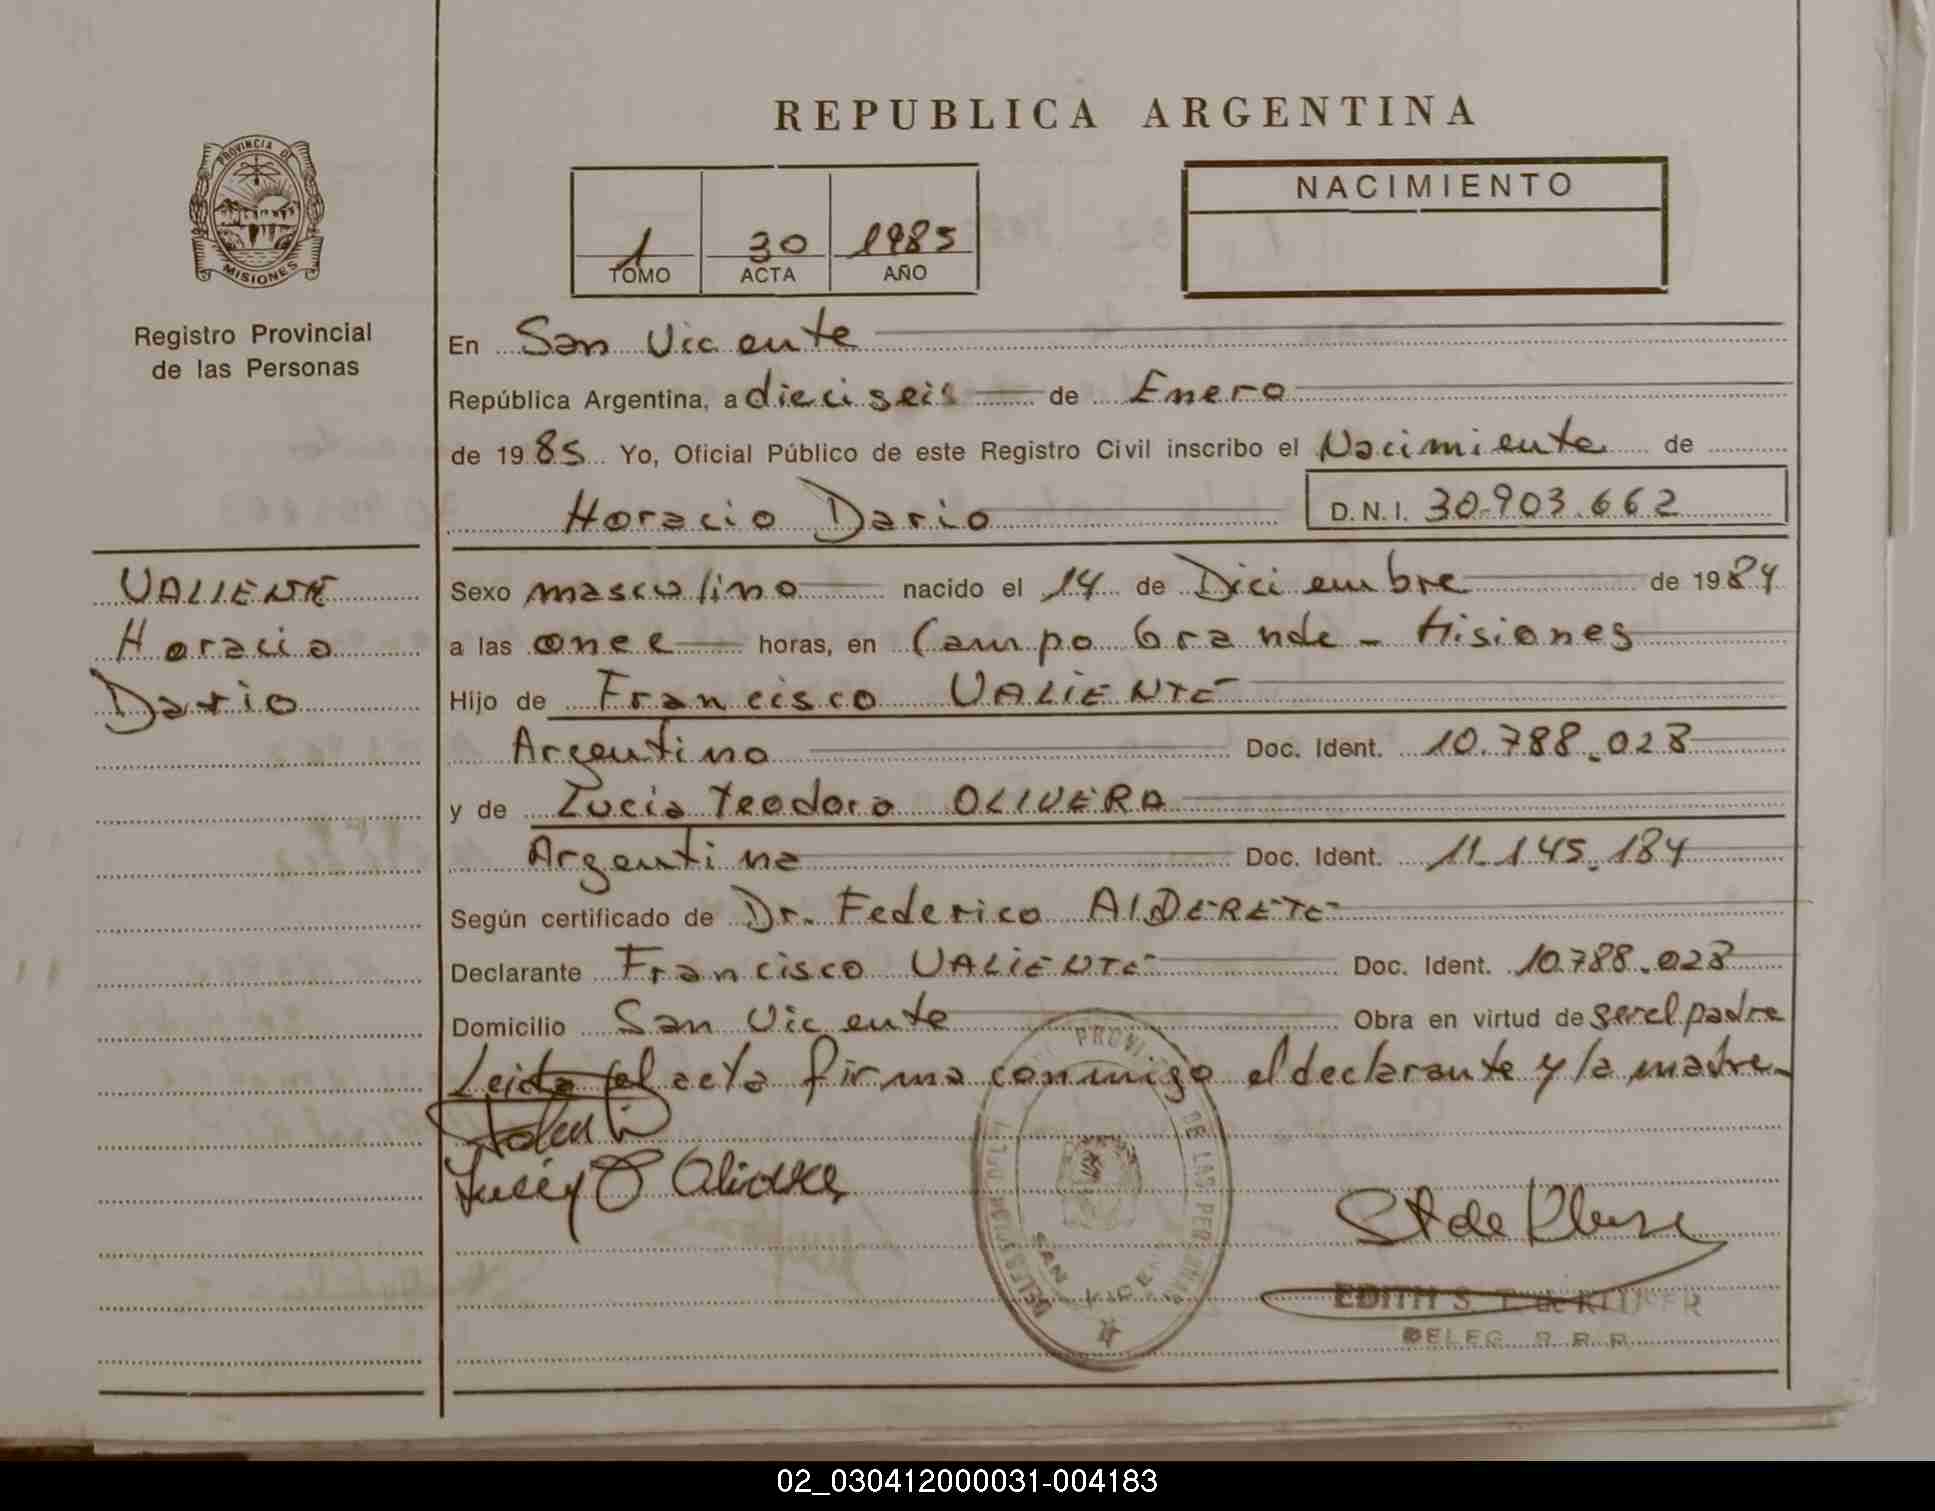 REPUBLICA ARGENTINA
PROVINCIA DE
MISIONES
Registro Provincial
de las Personas
1 30 1985
TOMO ACTA AÑO
NACIMIENTO
En San Vicente
República Argentina, a dieciseis de Enero
de 1985 Yo, Oficial Público de este Registro Civil inscribo el Nacimiento de
Horacio Dario D.N.I. 30.903.662
VALIENTE
Horacio
Dario
Sexo masculino nacido el 14 de Diciembre de 1984
a las once horas, en Campo Grande - Misiones
Hijo de Francisco VALIENTE
Argentino Doc. Ident. 10.788.028
y de Lucia Teodora OLIVERA
Argentina Doc. Ident. 11.145.184
Según certificado de Dr. Federico AlDERETE
Declarante Francisco VALIENTE Doc. Ident. 10.788.028
Domicilio San Vicente Obra en virtud de ser el padre
Leida el acta firma conmigo el declarante y la madre.
Lucia T Olivera
DE LAS PER
SAN VICEN
EDITH S. T. de KLUSER
DELEG. R. R. P.
02_030412000031-004183